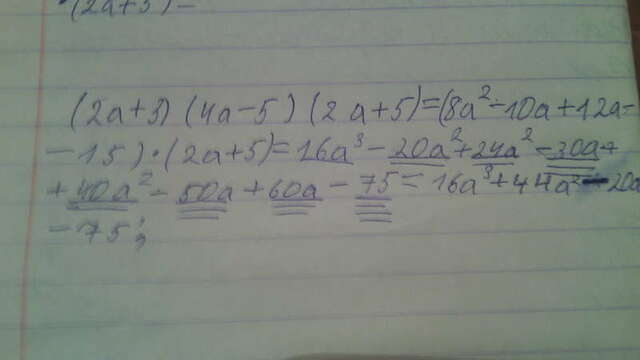 (2a+3) =
(2a+3) (4a-5) (2a+5)=(8a²-10a+12a-
-15)·(2a+5)=16a³-20a²+24a²-30a+
+40a²-50a+60a-75=16a³+44a²-20a
-75;